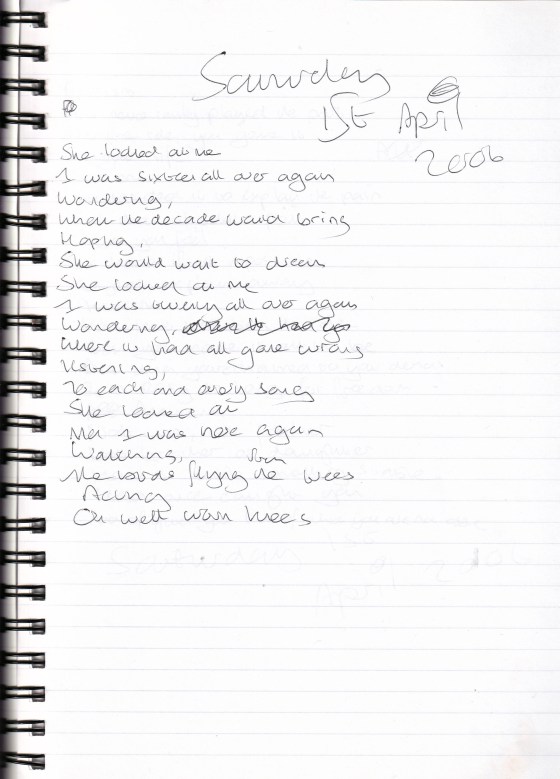 Saturday
1st April
2006
She looked at me
I was sixteen all over again
Wondering,
What the decade would bring
Hoping,
She would want to dream
She looked at me
I was twenty all over again
Wondering,
Where it had all gone wrong
Listening,
To each and every song
She looked at
Me I was here again
Watching,
The birds flying the trees
from
Acting
On weak worn knees